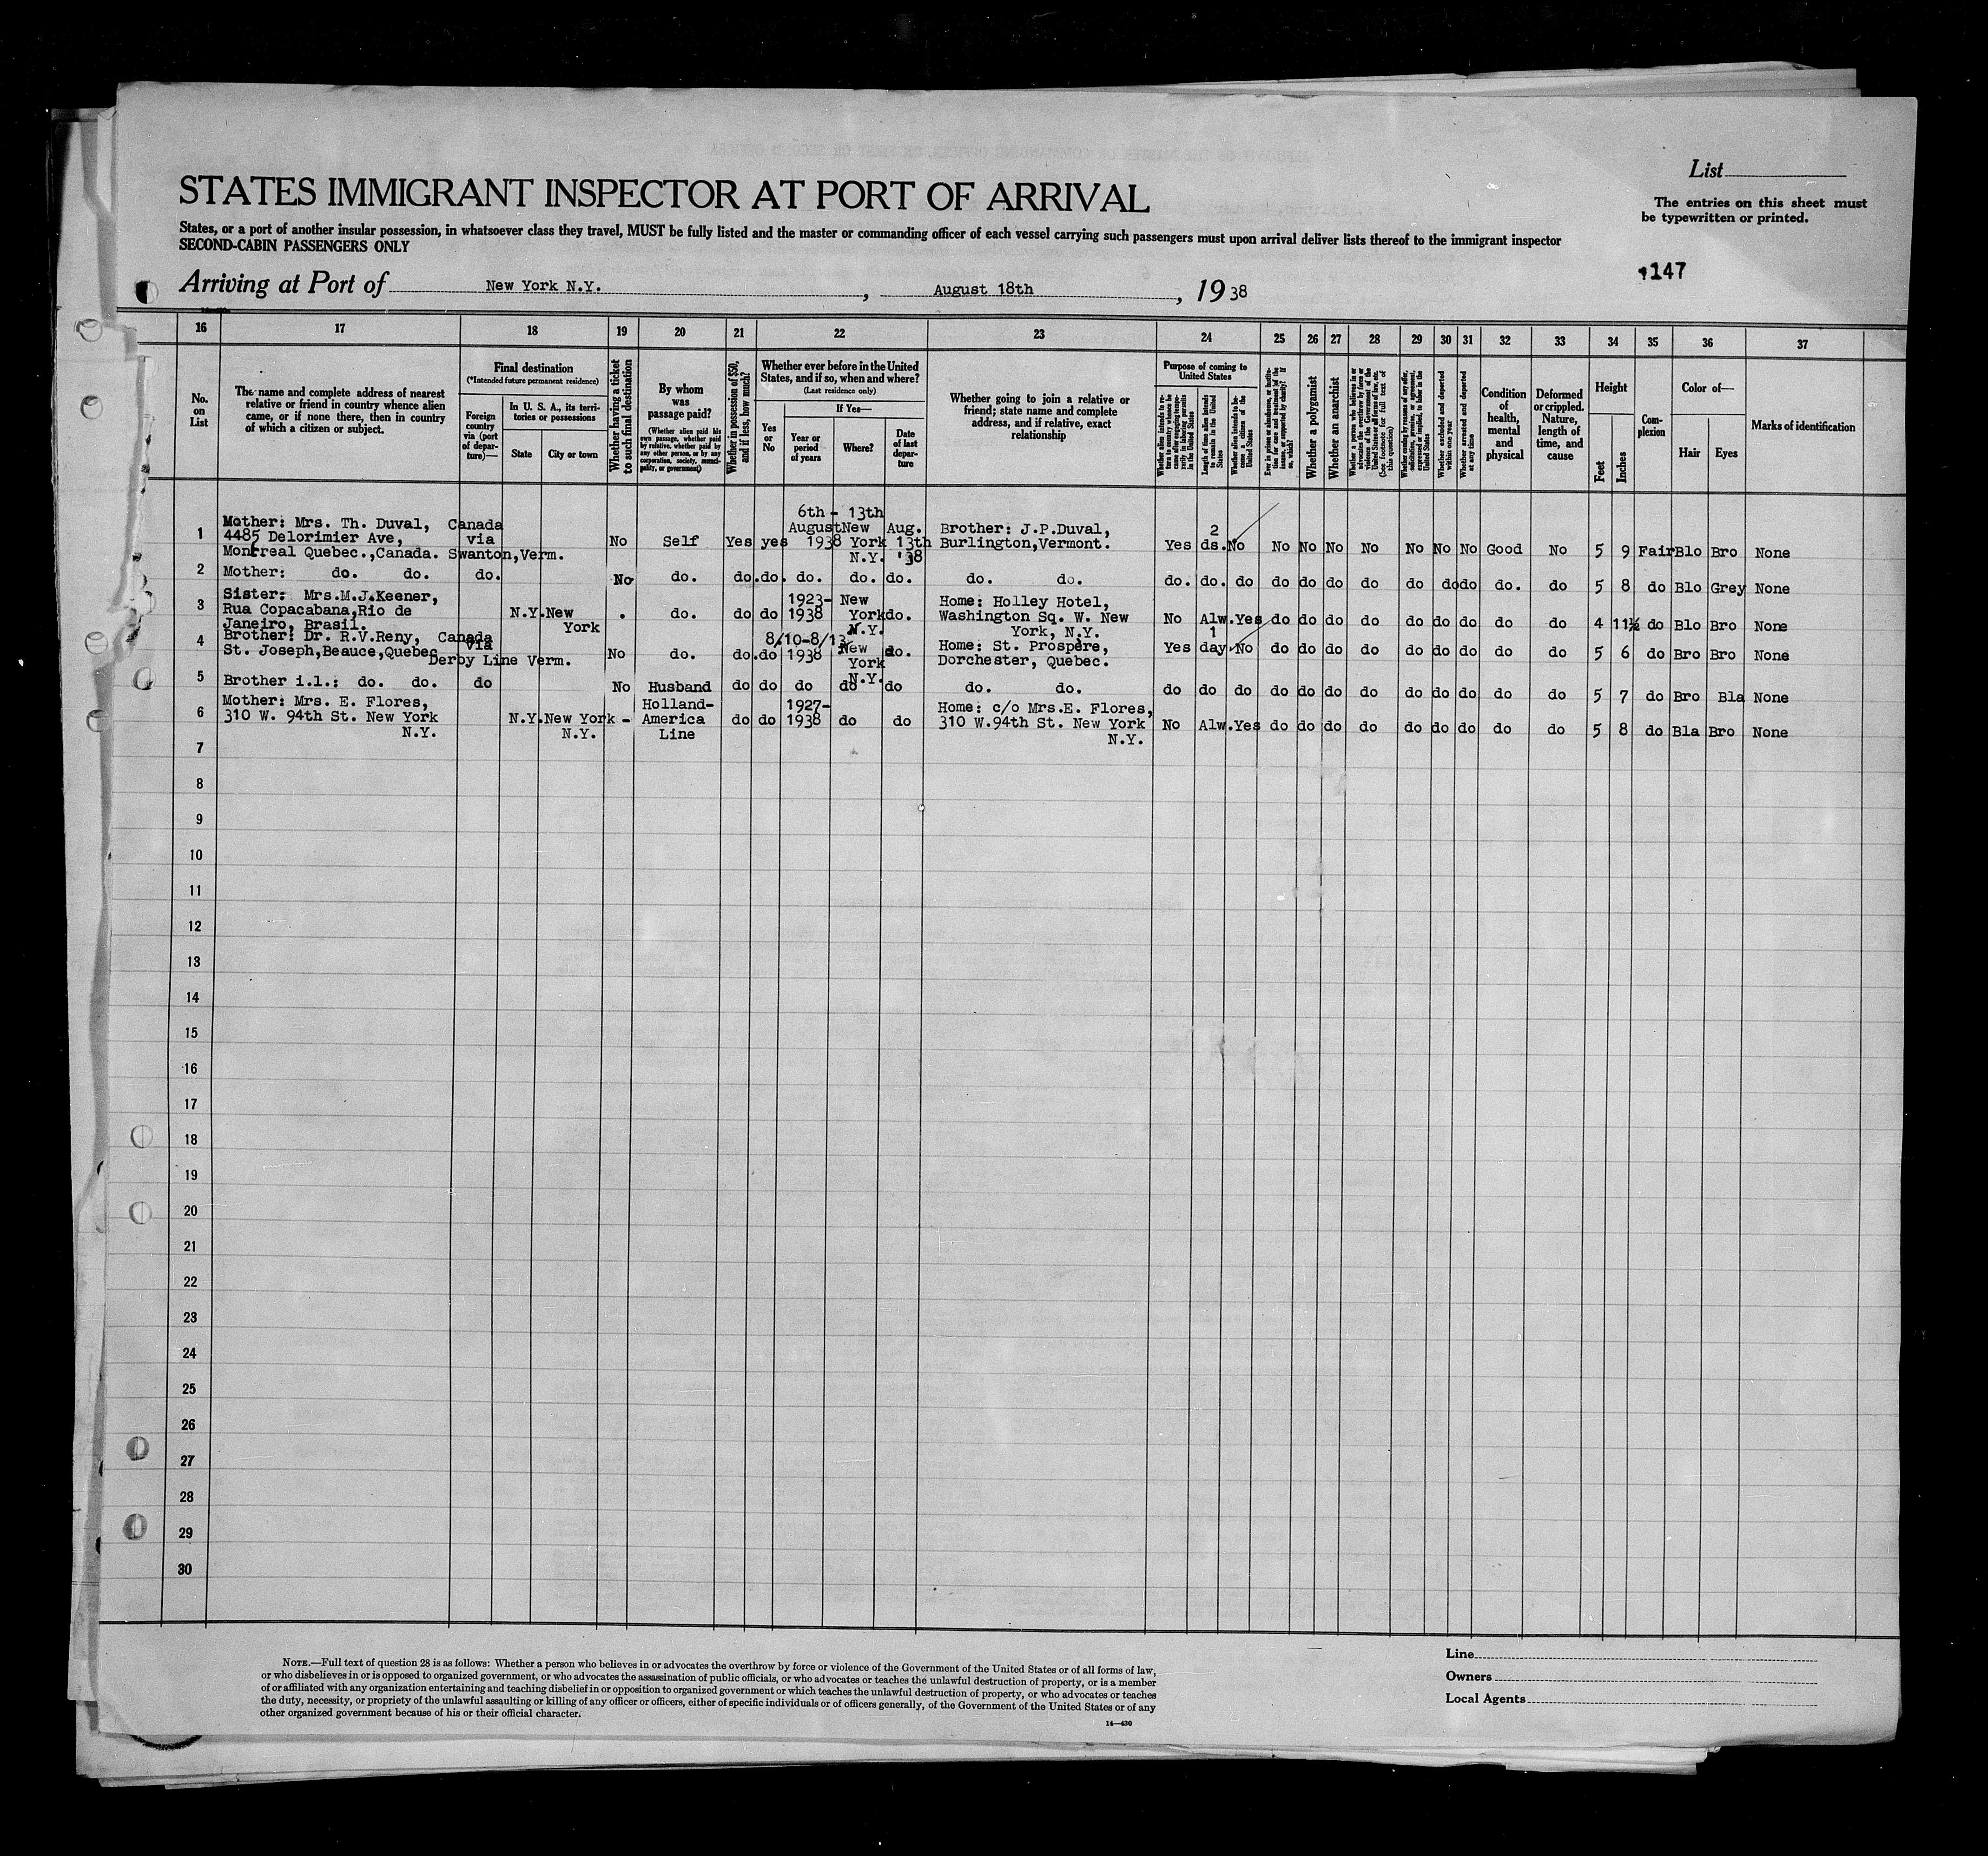 List
STATES IMMIGRANT INSPECTOR AT PORT OF ARRIVAL
The entries on this sheet must
be typewritten or printed.
States, or a port of another insular possession, in whatsoever class they travel, MUST be fully listed and the master or commanding officer of each vessel carrying such passengers must upon arrival deliver lists thereof to the immigrant inspector
SECOND-CABIN PASSENGERS ONLY
147
Arriving at Port of New York N.Y., August 18th, 1938
16 17 18 19 20 21 22 23 24 25 26 27 28 29 30 31 32 33 34 35 36 37
No.
on
List
The name and complete address of nearest
relative or friend in country whence alien
came, or if none there, then in country
of which a citizen or subject.
Final destination
(*Intended future permanent residence)
Foreign
country
via (port
of depar-
ture)—
In U. S. A., its terri-
tories or possessions
State
City or town
Whether having a ticket
to such final destination
By whom
was
passage paid?
(Whether alien paid his
own passage, whether paid
by relative, whether paid by
any other person, or by any
corporation, society, munici-
pality, or government)
Whether in possession of $50,
and if less, how much?
Whether ever before in the United
States, and if so, when and where?
(Last residence only)
Yes
or
No
If Yes—
Year or
period
of years
Where?
Date
of last
depar-
ture
Whether going to join a relative or
friend; state name and complete
address, and if relative, exact
relationship
Purpose of coming to
United States
Length of time alien intends
to remain in the United
States
Whether alien intends to be-
come a citizen of the
United States
Whether a polygamist
Whether an anarchist
Whether excluded and deported
within one year
Whether arrested and deported
at any time
Condition
of
health,
mental
and
physical
Deformed
or crippled.
Nature,
length of
time, and
cause
Height
Feet
Inches
Com-
plexion
Color of—
Hair
Eyes
Marks of identification
6th - 13th
1 Mother: Mrs. Th. Duval, Canada August New Aug. Brother: J.P.Duval, 2
4485 Delorimier Ave, via No Self Yes yes 1938 York 13th Burlington,Vermont. Yes ds. No No No No No No No No Good No 5 9 Fair Blo Bro None
Montreal Quebec.,Canada. Swanton,Verm. N.Y. '38
2 Mother: do. do. do. No do. do. do. do. do. do. do. do. do. do. do do do do do do do do do. do 5 8 do Blo Grey None
3 Sister: Mrs.M.J.Keener, 1923- New Home: Holley Hotel,
Rua Copacabana,Rio de N.Y. New . do. do do 1938 York do. Washington Sq. W. New No Alw. Yes do do do do do do do do do 4 11½ do Blo Bro None
Janeiro, Brasil. York N.Y. York, N.Y.
4 Brother: Dr. R.V.Reny, Canada via 8/10-8/13 1
St. Joseph,Beauce,Quebec No do. do. do 1938 New do. Home: St. Prospère, Yes day No do do do do do do do do do 5 6 do Bro Bro None
Derby Line Verm. York Dorchester, Quebec.
N.Y.
5 Brother i.l.: do. do. do No Husband do do do do do do. do. do do do do do do do do do do do do 5 7 do Bro Bla None
6 Mother: Mrs. E. Flores, Holland- 1927- Home: c/o Mrs.E. Flores,
310 W. 94th St. New York N.Y. New York - America do do 1938 do do 310 W.94th St. New York No Alw. Yes do do do do do do do do do 5 8 do Bla Bro None
N.Y. N.Y. Line N.Y.
7
8
9
10
11
12
13
14
15
16
17
18
19
20
21
22
23
24
25
26
27
28
29
30
NOTE.—Full text of question 28 is as follows: Whether a person who believes in or advocates the overthrow by force or violence of the Government of the United States or of all forms of law,
or who disbelieves in or is opposed to organized government, or who advocates the assassination of public officials, or who advocates or teaches the unlawful destruction of property, or is a member
of or affiliated with any organization entertaining and teaching disbelief in or opposition to organized government or which teaches the unlawful destruction of property, or who advocates or teaches
the duty, necessity, or propriety of the unlawful assaulting or killing of any officer or officers, either of specific individuals or of officers generally, of the Government of the United States or of any
other organized government because of his or their official character.
14—430
Line
Owners
Local Agents